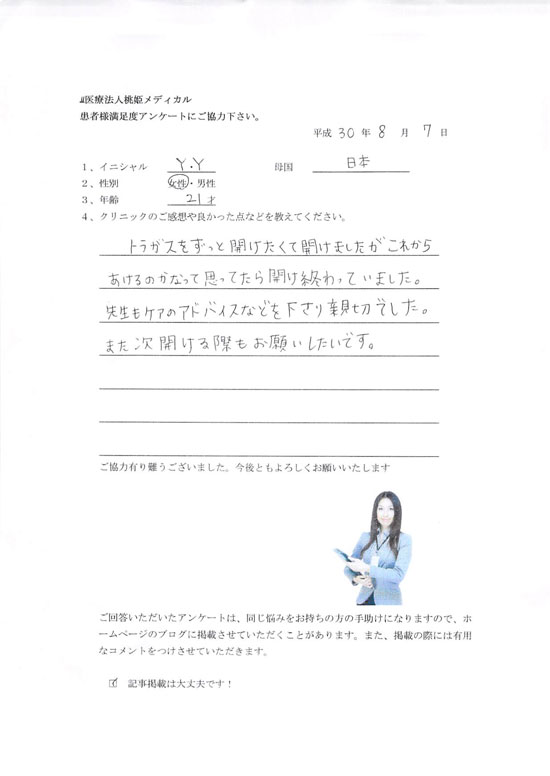 医療法人桃姫メディカル
患者様満足度アンケートにご協力下さい。
平成 30 年 8 月 7 日
1、イニシャル Y.Y 母国 日本
2、性別 女性・男性
3、年齢 21才
4、クリニックのご感想や良かった点などを教えてください。
トラガスをずっと開けたくて開けましたがこれから
あけるのかなって思ってたら開け終わっていました。
先生もケアのアドバイスなどを下さり親切でした。
また次開ける際もお願いしたいです。
ご協力有り難うございました。今後ともよろしくお願いいたします
ご回答いただいたアンケートは、同じ悩みをお持ちの方の手助けになりますので、ホ
ームページのブログに掲載させていただくことがあります。また、掲載の際には有用
なコメントをつけさせていただきます。
☑ 記事掲載は大丈夫です！